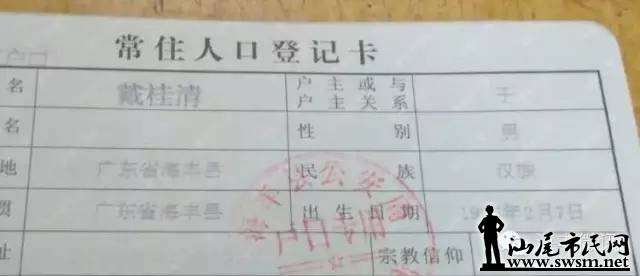 常住人口登记卡
名 戴桂清 户主或与户主关系 子
名 性别 男
地 广东省海丰县 民族 汉族
贯 广东省海丰县 出生日期 年2月7日
址 宗教信仰
公安局
户口专用
汕尾市民网
www.swsm.net